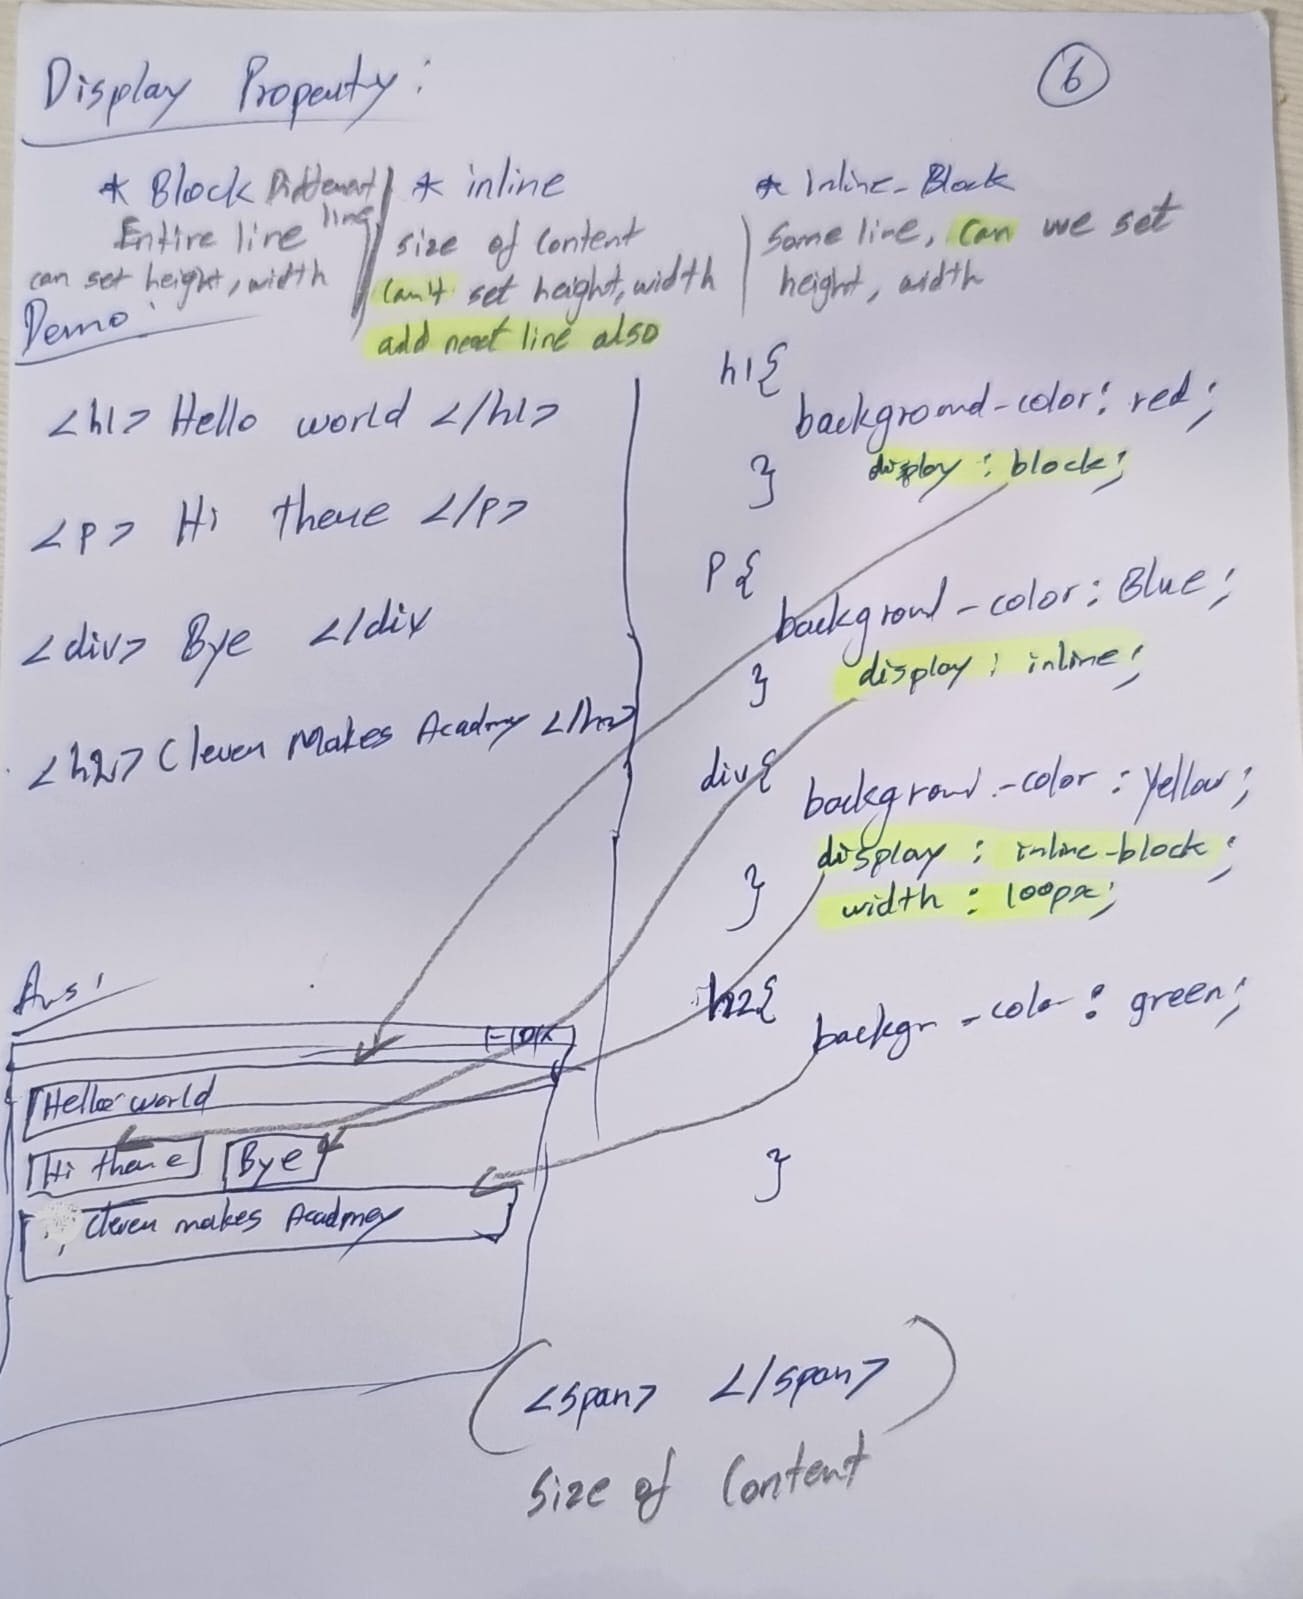 Display Property:
6
* Block Different line
Entire line
can set height, width
* inline
size of Content
Can't set height, width
add next line also
* Inline-Block
Same line, can we set
height, width
Demo:
<h1> Hello world </h1>
<p> Hi there </p>
<div> Bye </div
<h2> Clever Makes Acadmy </h2>
h1{
background-color: red;
display: block;
}
p{
background-color: Blue;
display: inline;
}
div{
background-color: yellow;
display: inline-block;
width: 100px;
}
h2{
backgr-color: green;
}
Ans:
Hello world
Hi there
Bye
Clever makes Acadmey
(<span> </span>)
Size of Content